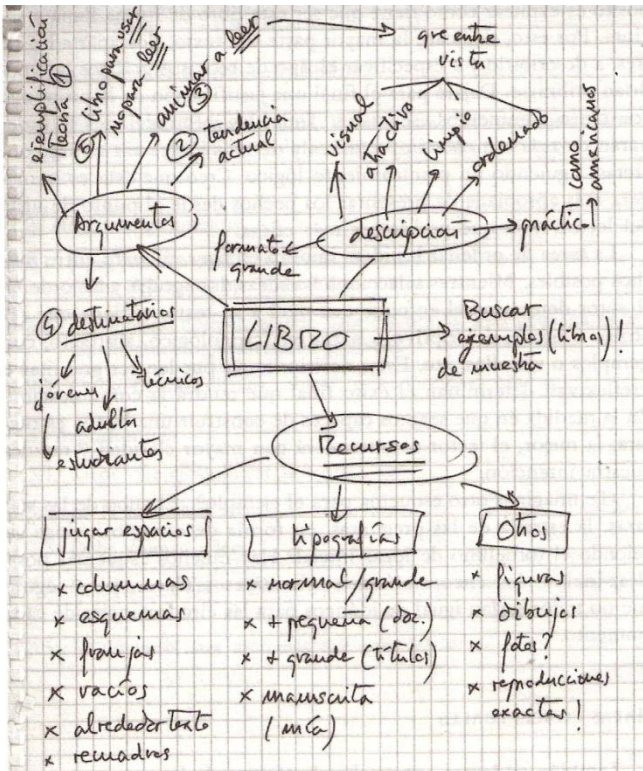 ejemplificación
teoría ①
⑤ libro para usar
no para leer
animar a leer
③
② tendencia
actual
que entre
vista
visual
atractivo
limpio
ordenado
como
americanos
Argumentos
descripción
práctico
formato
grande
④ destinatarios
jóvenes
técnicos
adultos
estudiantes
LIBRO
Buscar
ejemplos (libros)!
de muestra
Recursos
jugar espacios
x columnas
x esquemas
x franjas
x vacíos
x alrededor texto
x recuadros
tipografías
x normal/grande
x + pequeña (doc.)
x + grande (títulos)
x manuscrita
(mía)
Otros
x figuras
x dibujos
x fotos?
x reproducciones
exactas!